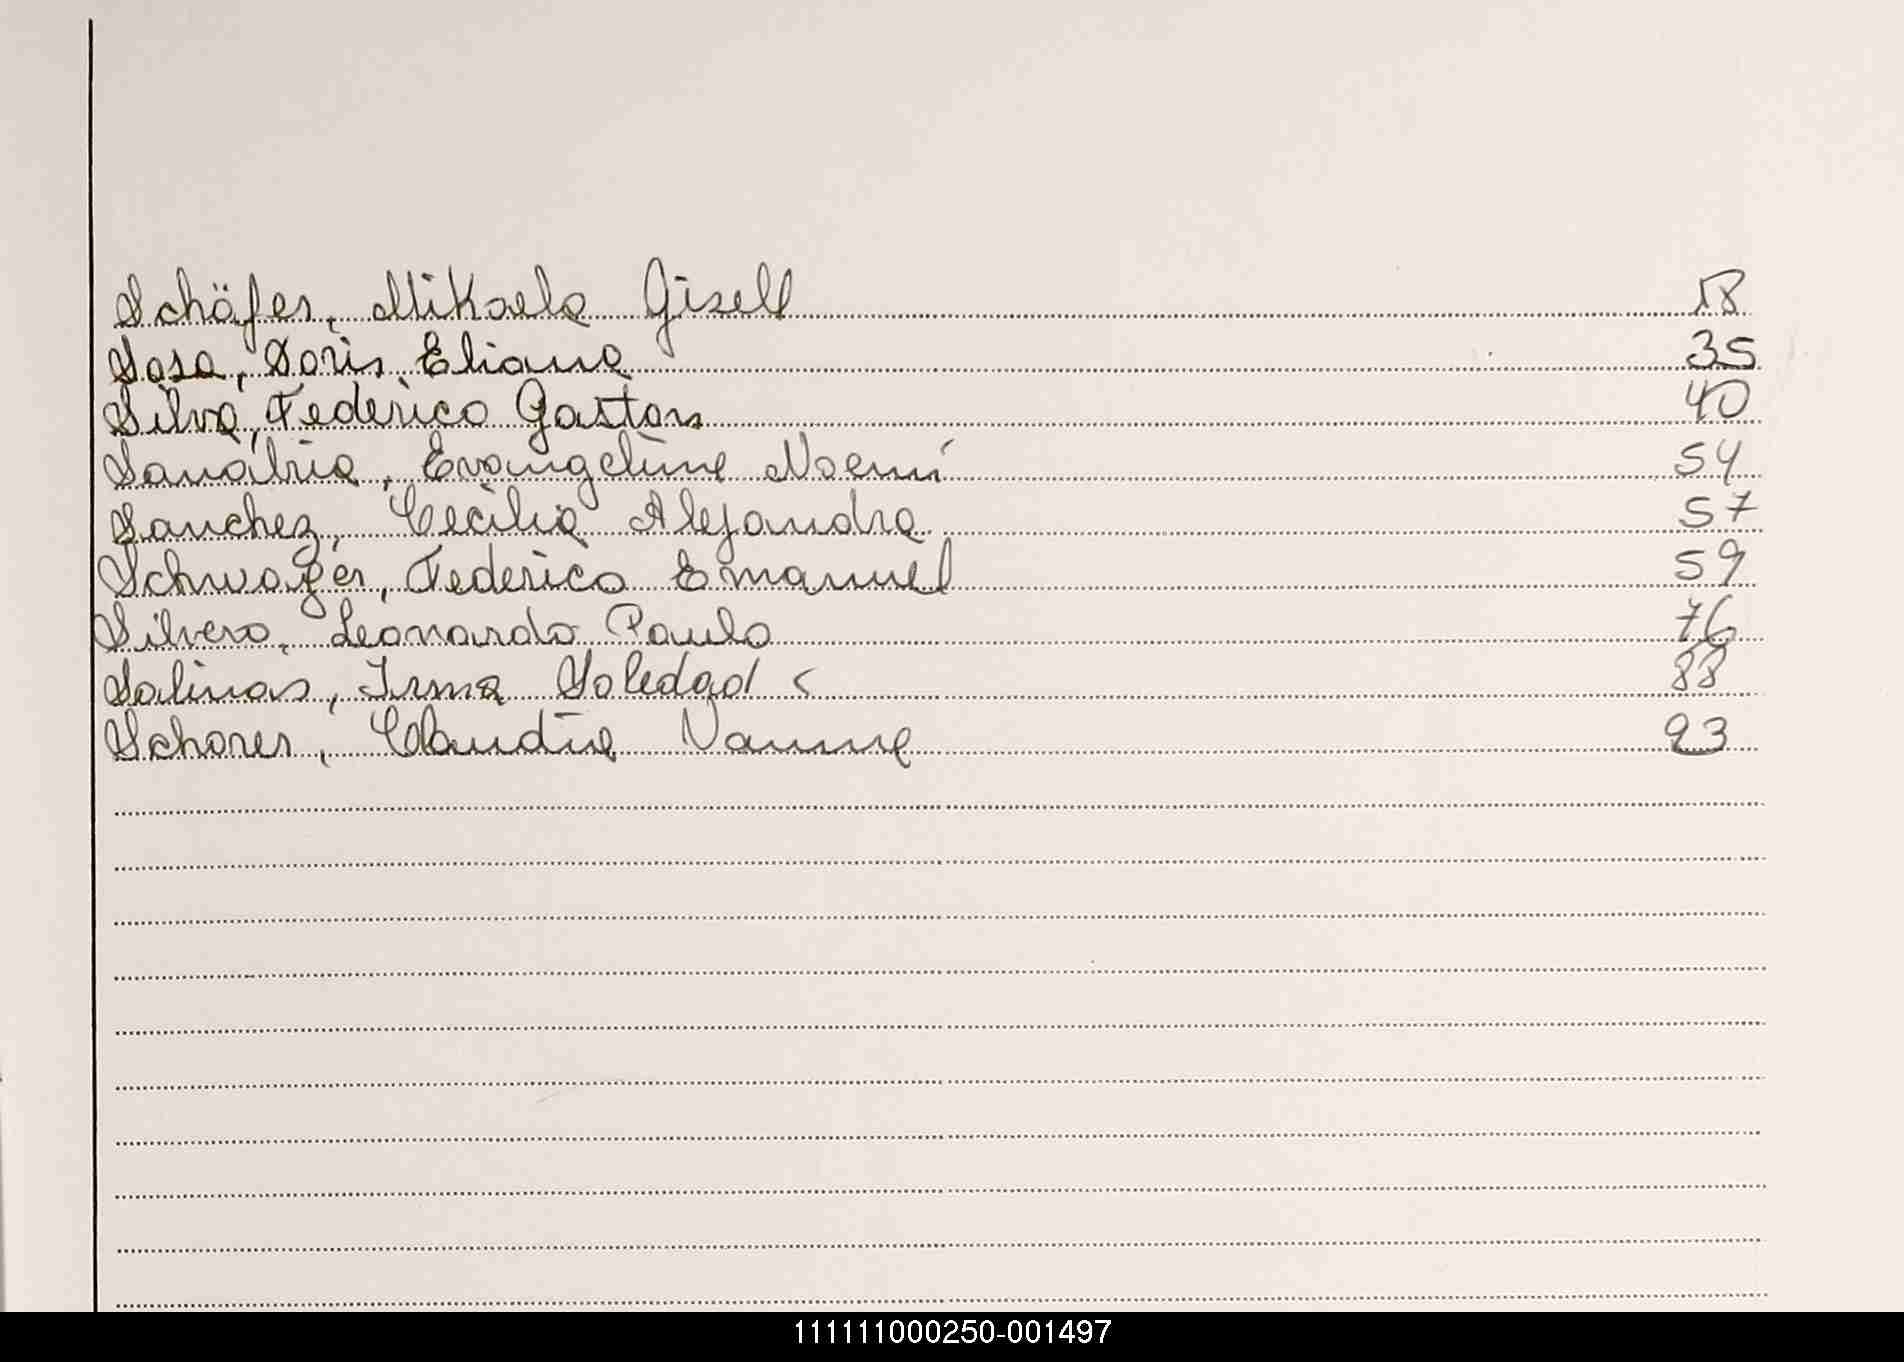 Schäfer, Mikaela Gisell 18
Sosa, Doris Eliana 35
Silva, Federico Gaston 40
Sanabria, Evangelina Noemí 54
Sanchez, Cecilia Alejandra 57
Schwager, Federico Emanuel 59
Silvero, Leonardo Paulo 76
Salinas, Irma Soledad 88
Schorer, Claudia Vanina 93
111111000250-001497